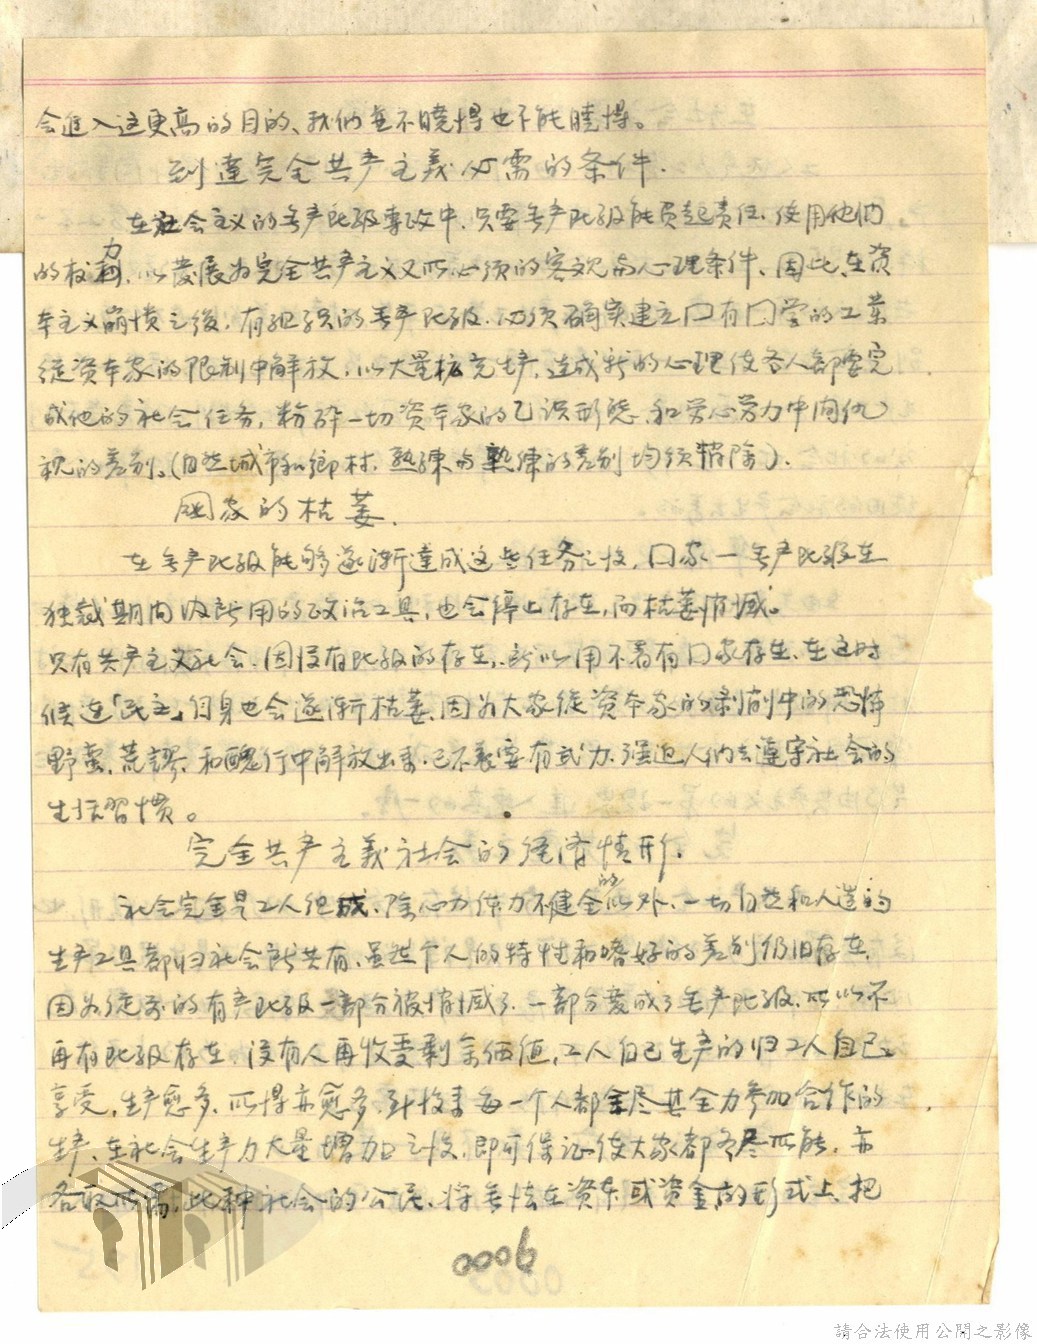 会进入这更高的目的、我们并不晓得也不能晓得。
到達完全共产主義必需的条件.
在社会主义的无产阶级專政中.只要无产阶级能负起责任.使用他们
的权力,以发展为完全共产主义又所必须的客观与心理条件、因此,在資
本主义崩愦之後,有组织的无产阶级.必须确实建立囗有囗营的工業
從資本家的限制中解放,以大量扩充生产,造成新的心理使各人都要完
成他的社会任务,粉碎一切资本家的乙识形态.和劳心劳力中间仇
視的差别。(自然城市和鄉村.熟練与熟練的差别均须消除).
国家的枯萎.
在无产阶级能够逐漸達成这些任务之後,囗家一无产阶级在
独裁期间内所用的政治工具,也会停止存在,而枯萎消滅。
只有共产主义社会.因没有阶级的存在.所以用不着有囗家存在、在这时
候连「民主」自身也会逐漸枯萎.因为大家從资本家的剥削中的恐怖
野蛮.荒謬.和醜行中解放出来.已不要有武力.强迫人们去遵守社会的
生活習慣。
完全共产主義社会的經济情形.
社会完全是工人组成、除心力体力不健全的以外、一切自然和人造的
生产工具都归社会所共有.虽然个人的特性和嗜好的差别仍旧存在.
因为從前的有产阶级一部分被消滅了.一部分变成了无产阶级.所以不
再有阶级存在.没有人再收受剩余価值,工人自己生产的归工人自己
享受.生产愈多.所得亦愈多.到後来每一个人都尽其全力参加合作的
生产、在社会生产力大量增加之後.即可保证使大家都各尽所能,亦
各取所需,此种社会的公民、将无法在资本或资金的形式上、把
0006
請合法使用公開之影像